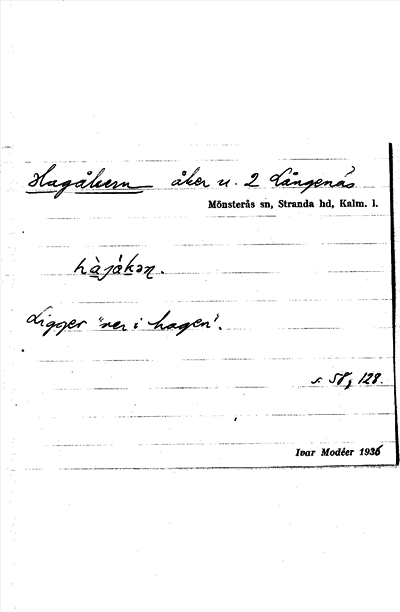 Hagåkern åker u. 2 Långenäs
Mönsterås sn, Stranda hd, Kalm. l.
Ligger "ner i hagen".
s. 58, 128.
Ivar Modéer 1936